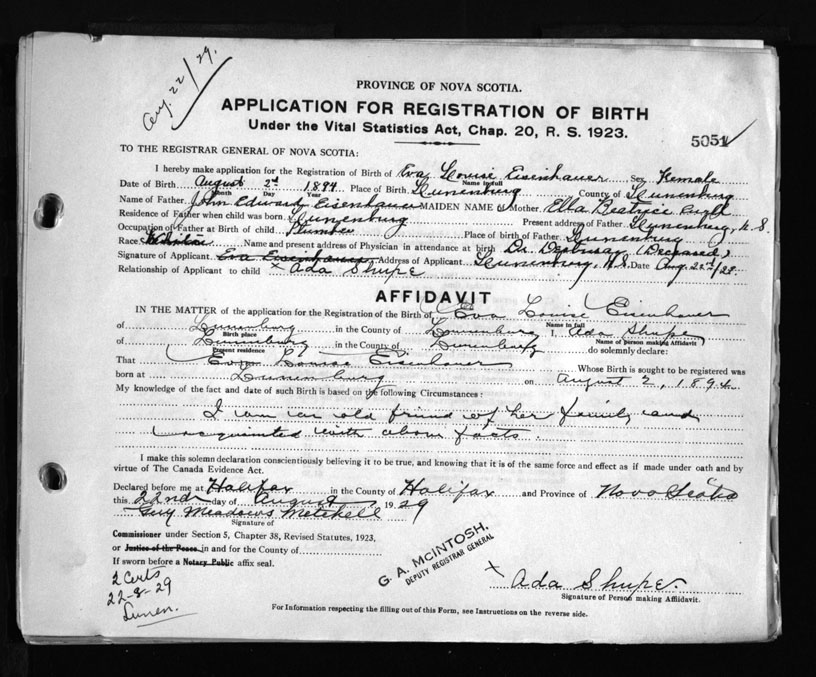 Aug. 22/29.
PROVINCE OF NOVA SCOTIA.
APPLICATION FOR REGISTRATION OF BIRTH
Under the Vital Statistics Act, Chap. 20, R. S. 1923.
5051
TO THE REGISTRAR GENERAL OF NOVA SCOTIA:
I hereby make application for the Registration of Birth of Eva Louise Eisenhauer Sex Female
Name in full
Date of Birth August 2nd 1894 Place of Birth Lunenburg County of Lunenburg
Month Day Year
Name of Father John Edward Eisenhauer MAIDEN NAME of Mother Ella Beatrice
Residence of Father when child was born Lunenburg Present address of Father Lunenburg, N.S.
Occupation of Father at Birth of child Plumber Place of birth of Father Lunenburg
Race Name and present address of Physician in attendance at birth Dr. (Deceased)
Signature of Applicant Eva Eisenhauer Address of Applicant Lunenburg, N.S. Date Aug 22nd/29
Relationship of Applicant to child x Ada Shupe
AFFIDAVIT
IN THE MATTER of the application for the Registration of the Birth of Eva Louise Eisenhauer
Name in full
of Lunenburg in the County of Lunenburg I, Ada Shupe
Birth place Name of person making Affidavit
of Lunenburg in the County of Lunenburg do solemnly declare:
Present residence
That Eva Louise Eisenhauer Whose Birth is sought to be registered was
born at Lunenburg on August 2, 1894
My knowledge of the fact and date of such Birth is based on the following Circumstances:
I am an old friend of her family and
acquainted with above facts.
I make this solemn declaration conscientiously believing it to be true, and knowing that it is of the same force and effect as if made under oath and by
virtue of The Canada Evidence Act.
Declared before me at Halifax in the County of Halifax and Province of Nova Scotia
this 22nd day of August 1929
Guy Meadows Mitchell
Signature of
Commissioner under Section 5, Chapter 38, Revised Statutes, 1923,
or Justice of the Peace in and for the County of
If sworn before a Notary Public affix seal.
G. A. McINTOSH,
DEPUTY REGISTRAR GENERAL
2 Certs
22-8-29
Lunen.
x Ada Shupe.
Signature of Person making Affidavit.
For Information respecting the filling out of this Form, see Instructions on the reverse side.